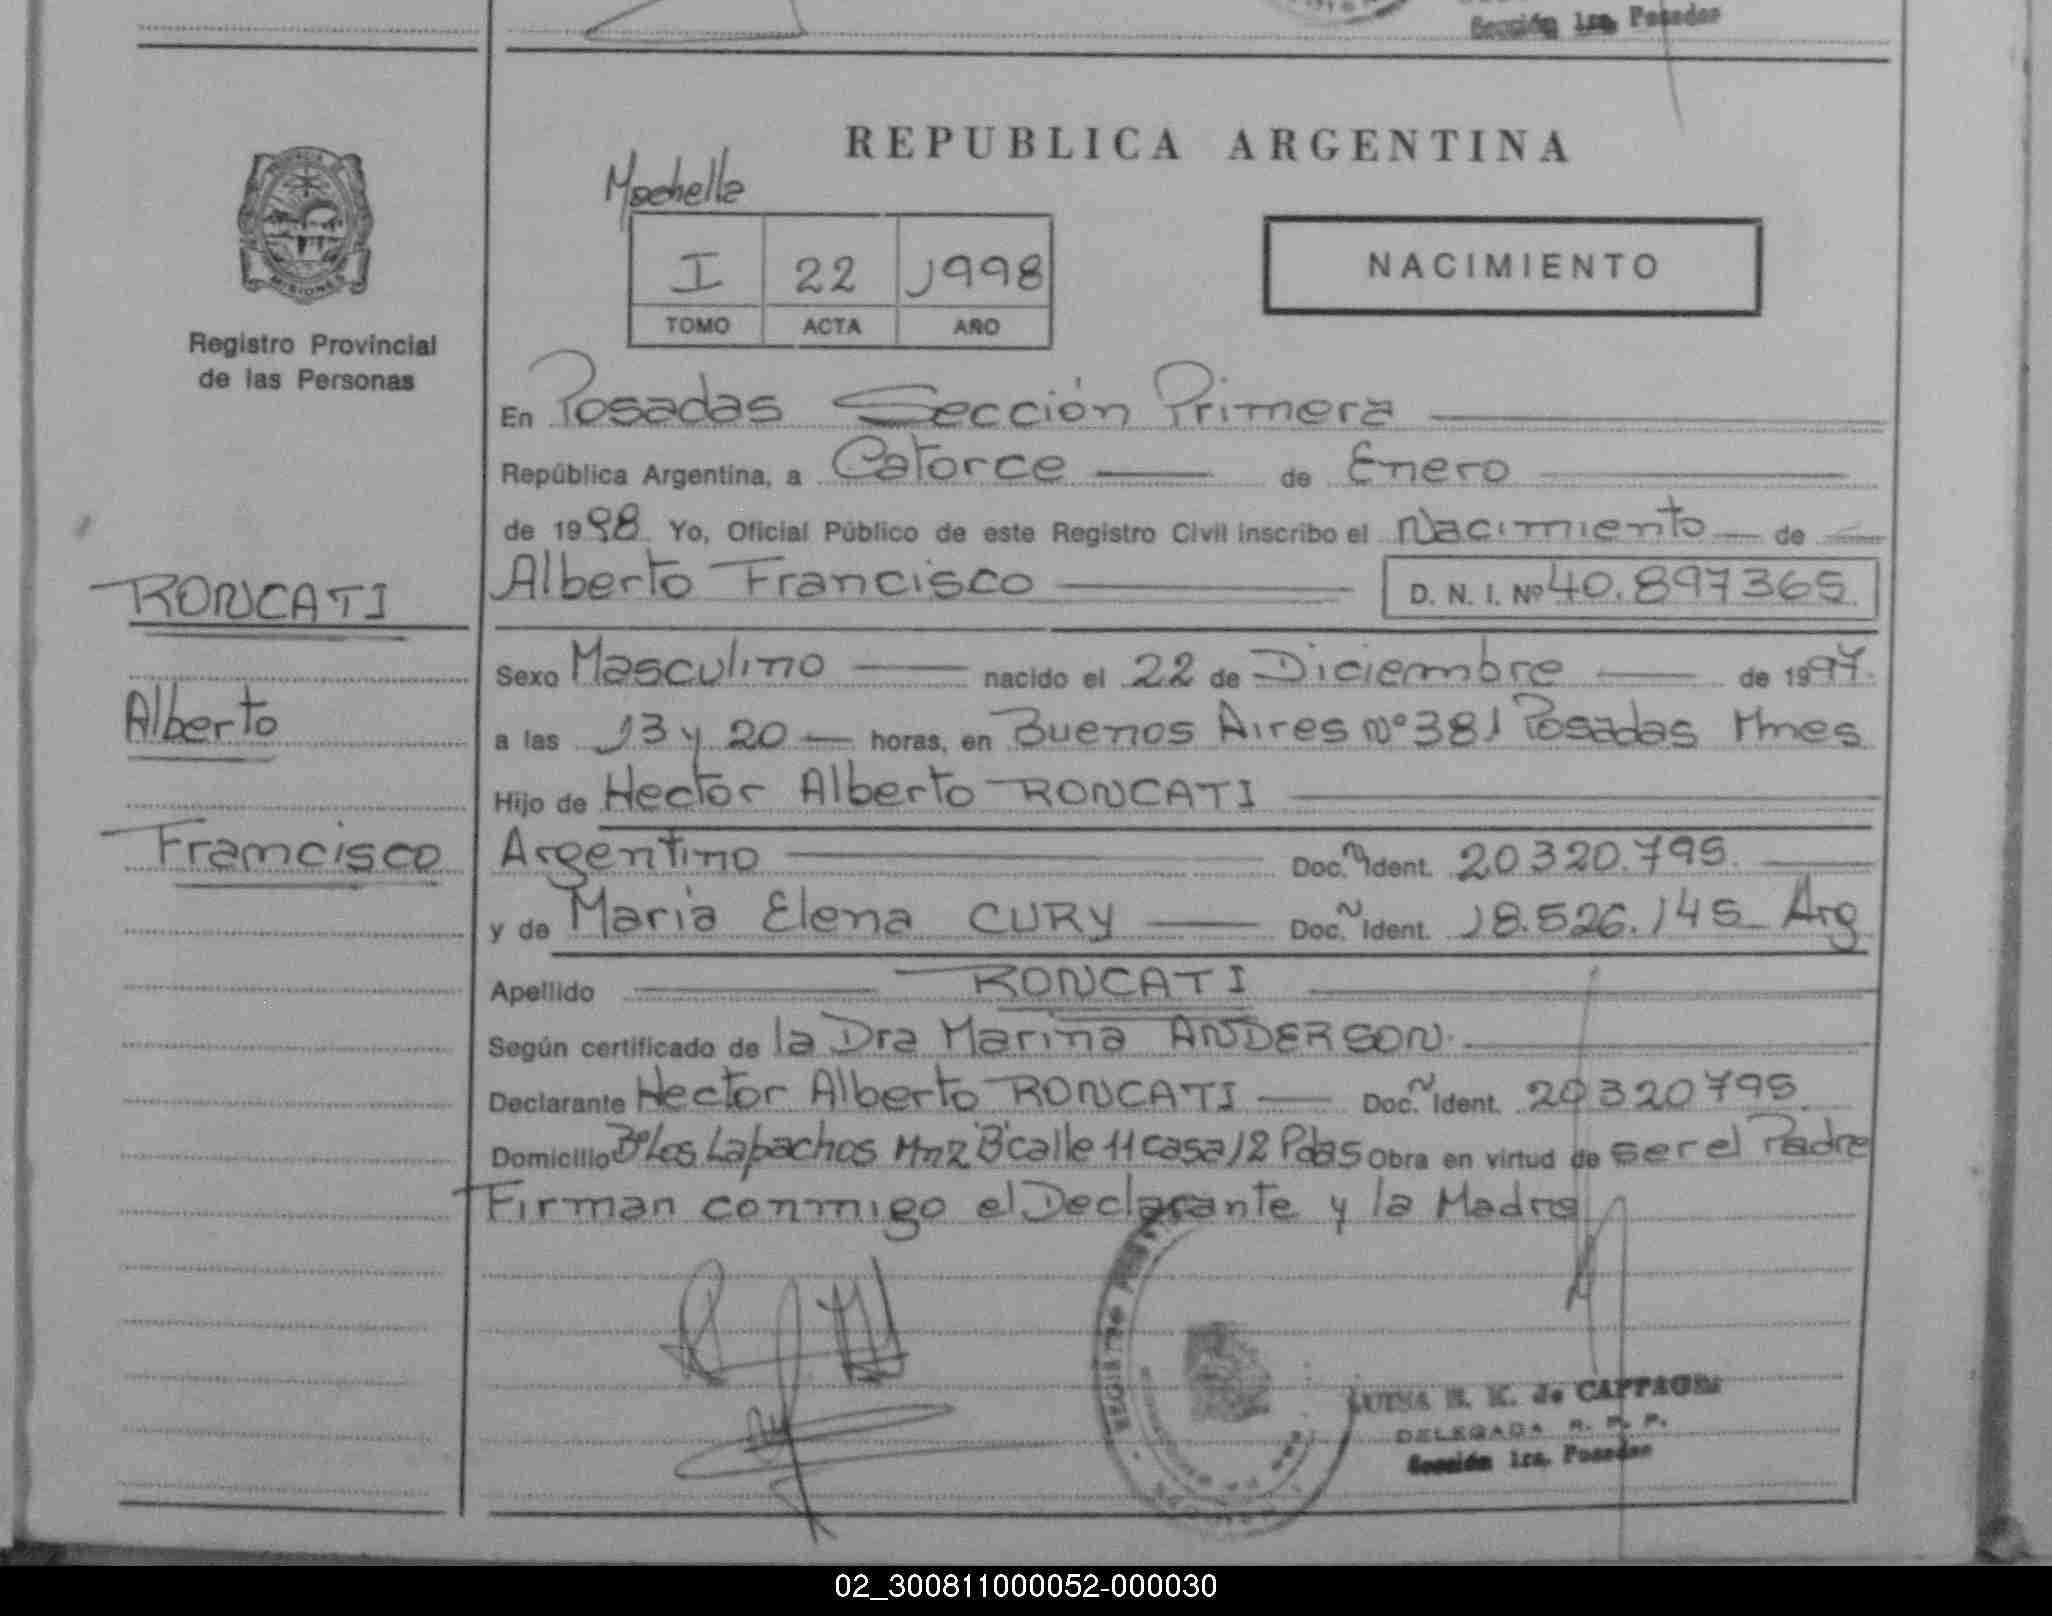 Sección 1ra. Posadas
REPUBLICA ARGENTINA
I 22 1998
TOMO ACTA AÑO
NACIMIENTO
MISIONES
Registro Provincial
de las Personas
En Posadas Sección Primera
República Argentina, a Catorce de Enero
de 1998 Yo, Oficial Público de este Registro Civil inscribo el Nacimiento de
Alberto Francisco D. N. I. Nº 40.897365
RONCATI
Alberto
Francisco
Sexo Masculino nacido el 22 de Diciembre de 1997.
a las 13 y 20 horas, en Buenos Aires Nº 381 Posadas Mnes
Hijo de Hector Alberto RONCATI
Argentino Doc. Ident. 20320.795.
y de Maria Elena CURY Doc. Ident. 18.526.145 Arg
Apellido RONCATI
Según certificado de la Dra Marina ANDERSON.
Declarante Hector Alberto RONCATI Doc. Ident. 20320795
Domicilio Bº Los Lapachos Mnz "B" calle 11 casa 12 Pdas Obra en virtud de ser el Padre
Firman conmigo el Declarante y la Madre
LUISA B. K. de
DELEGADA R. P. P.
Sección 1ra. Posadas
02_300811000052-000030